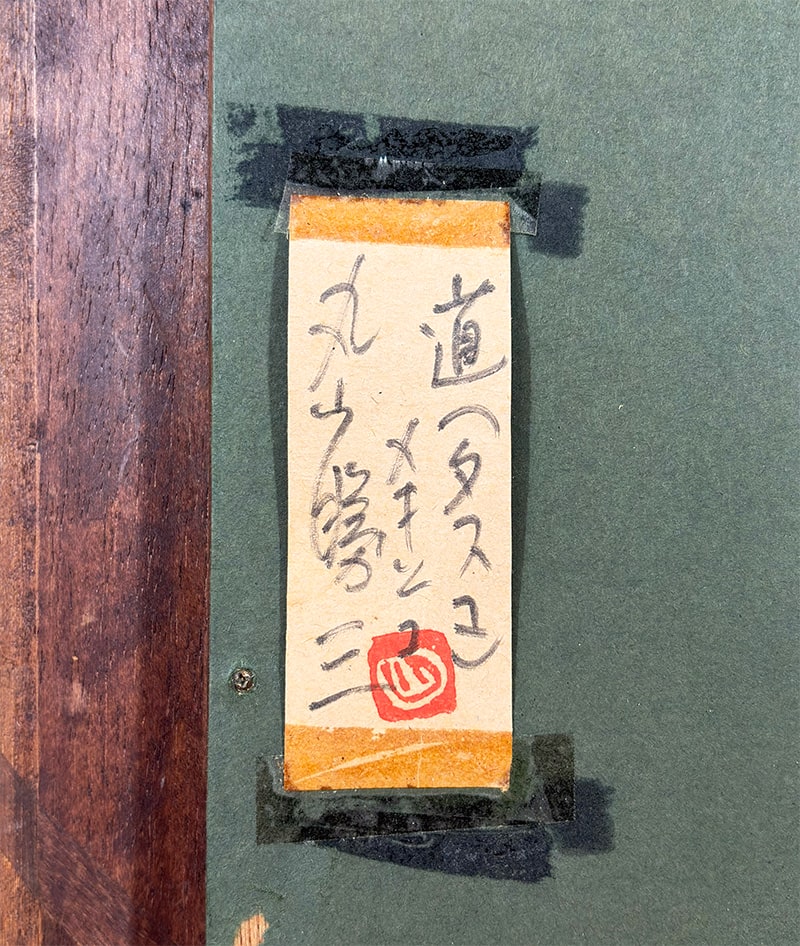 道(タスコ)
メキシコ
丸山勝三
山